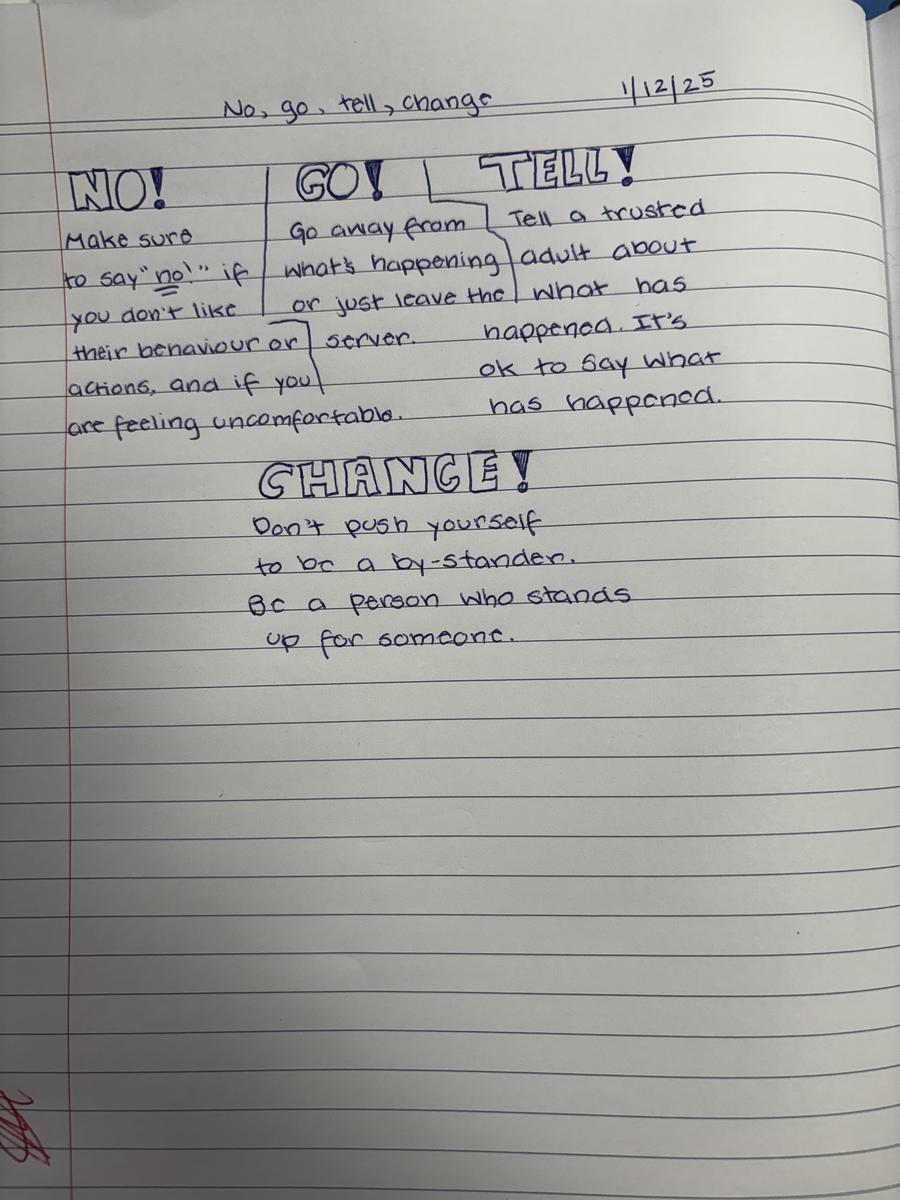 No, go, tell, change 1/12/25
NO!
Make sure
to say "no!" if
you don't like
their behaviour or
actions, and if you
are feeling uncomfortable.
GO!
Go away from
what's happening
or just leave the
server.
TELL!
Tell a trusted
adult about
what has
happened. It's
ok to say what
has happened.
CHANGE!
Don't push yourself
to be a by-stander.
Be a person who stands
up for someone.